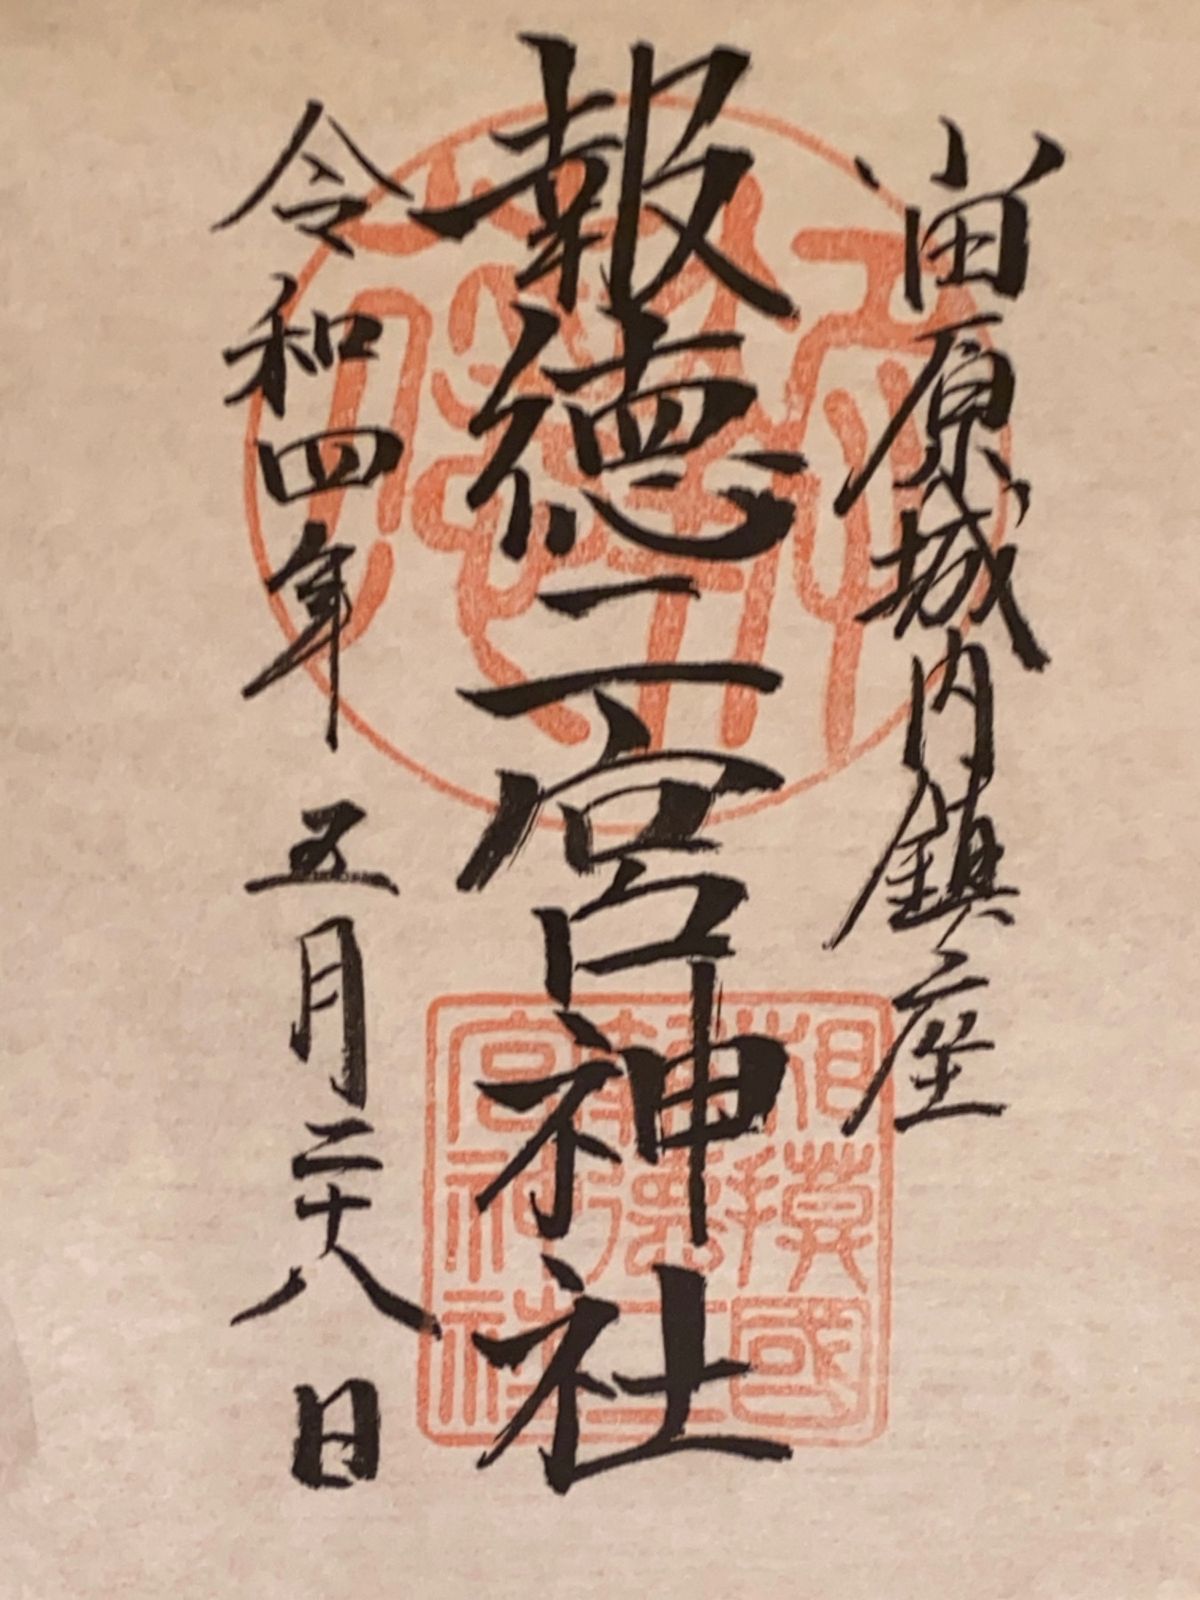 小田原城内鎮座
報徳二宮神社
令和四年 五月二十八日
相模國
報徳二
宮神社